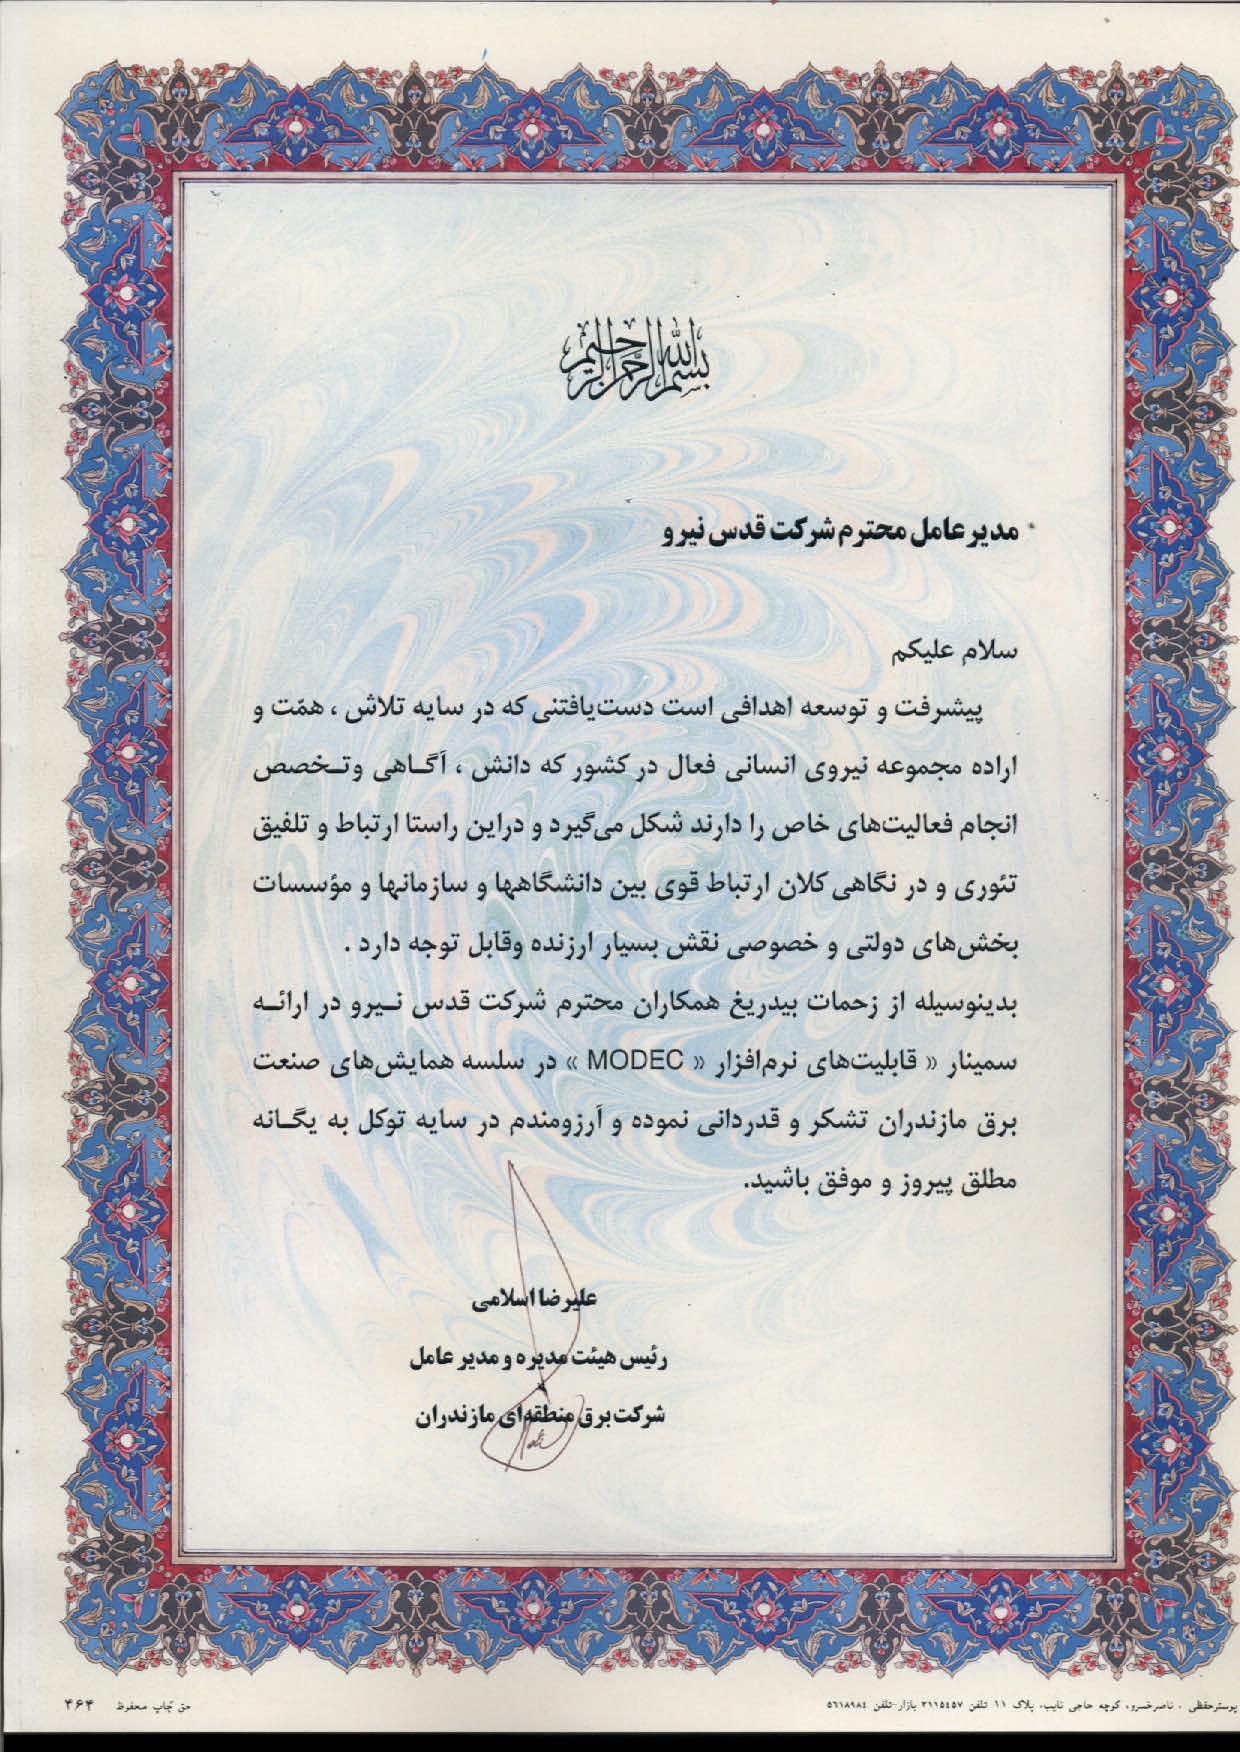 بسم الله الرحمن الرحیم
مدیر عامل محترم شرکت قدس نیرو
سلام علیکم
پیشرفت و توسعه اهدافی است دست‌یافتنی که در سایه تلاش ، همّت و
اراده مجموعه نیروی انسانی فعال در کشور که دانش ، آگـاهی وتـخصص
انجام فعالیت‌های خاص را دارند شکل می‌گیرد و دراین راستا ارتباط و تلفیق
تئوری و در نگاهی کلان ارتباط قوی بین دانشگاهها و سازمانها و مؤسسات
بخش‌های دولتی و خصوصی نقش بسیار ارزنده وقابل توجه دارد .
بدینوسیله از زحمات بیدریغ همکاران محترم شرکت قدس نـیرو در ارائـه
سمینار « قابلیت‌های نرم‌افزار « MODEC » در سلسه همایش‌های صنعت
برق مازندران تشکر و قدردانی نموده و آرزومندم در سایه توکل به یگـانه
مطلق پیروز و موفق باشید.
علیرضا اسلامی
رئیس هیئت مدیره و مدیر عامل
شرکت برق منطقه‌ای مازندران
پوسترحفظی . ناصرخسرو، کوچه حاجی نایب، پلاک ۱۱ تلفن ۳۱۱۵۴۵۷ بازار-تلفن ۵۶۱۸۹۸۴
حق چاپ محفوظ ۴۶۴